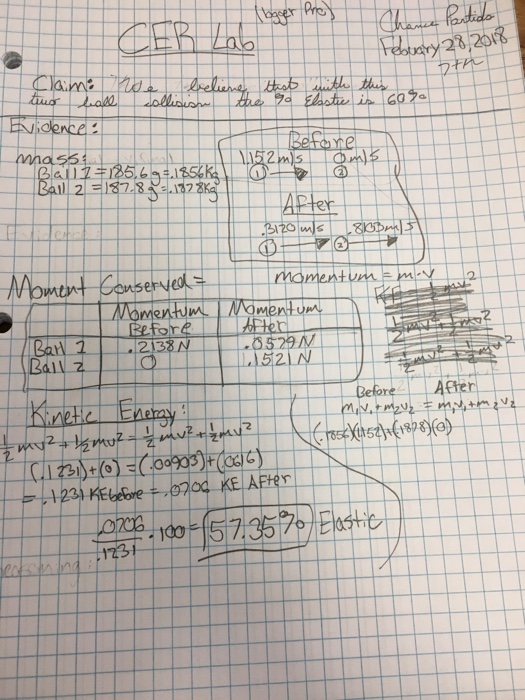 (logger Pro)
Chance Partido
CER Lab
Febuary 28, 2018
7th
Claim: We believe that with this
two ball collision the % Elastic is 60%
Evidence:
mass:
Ball 1 = 185.6 g = .1856 Kg
Ball 2 = 187.8 g = .1878 Kg
Before
1.152 m/s 0 m/s
1 2
After
.3120 m/s .8103 m/s
1 2
Moment Conserved =
momentum = m·v
Momentum Before Momentum After
Ball 1 .2138 N .0579 N
Ball 2 0 .1521 N
Before After
m₁v₁ + m₂v₂ = m₁v₁ + m₂v₂
(.1856)(1.152) + (.1878)(0)
Kinetic Energy:
½mv² + ½mv² = ½mv² + ½mv²
(.1231) + (0) = (.00903) + (.0616)
= .1231 KE before = .0706 KE After
.0706/.1231 · 100 = 57.35% Elastic